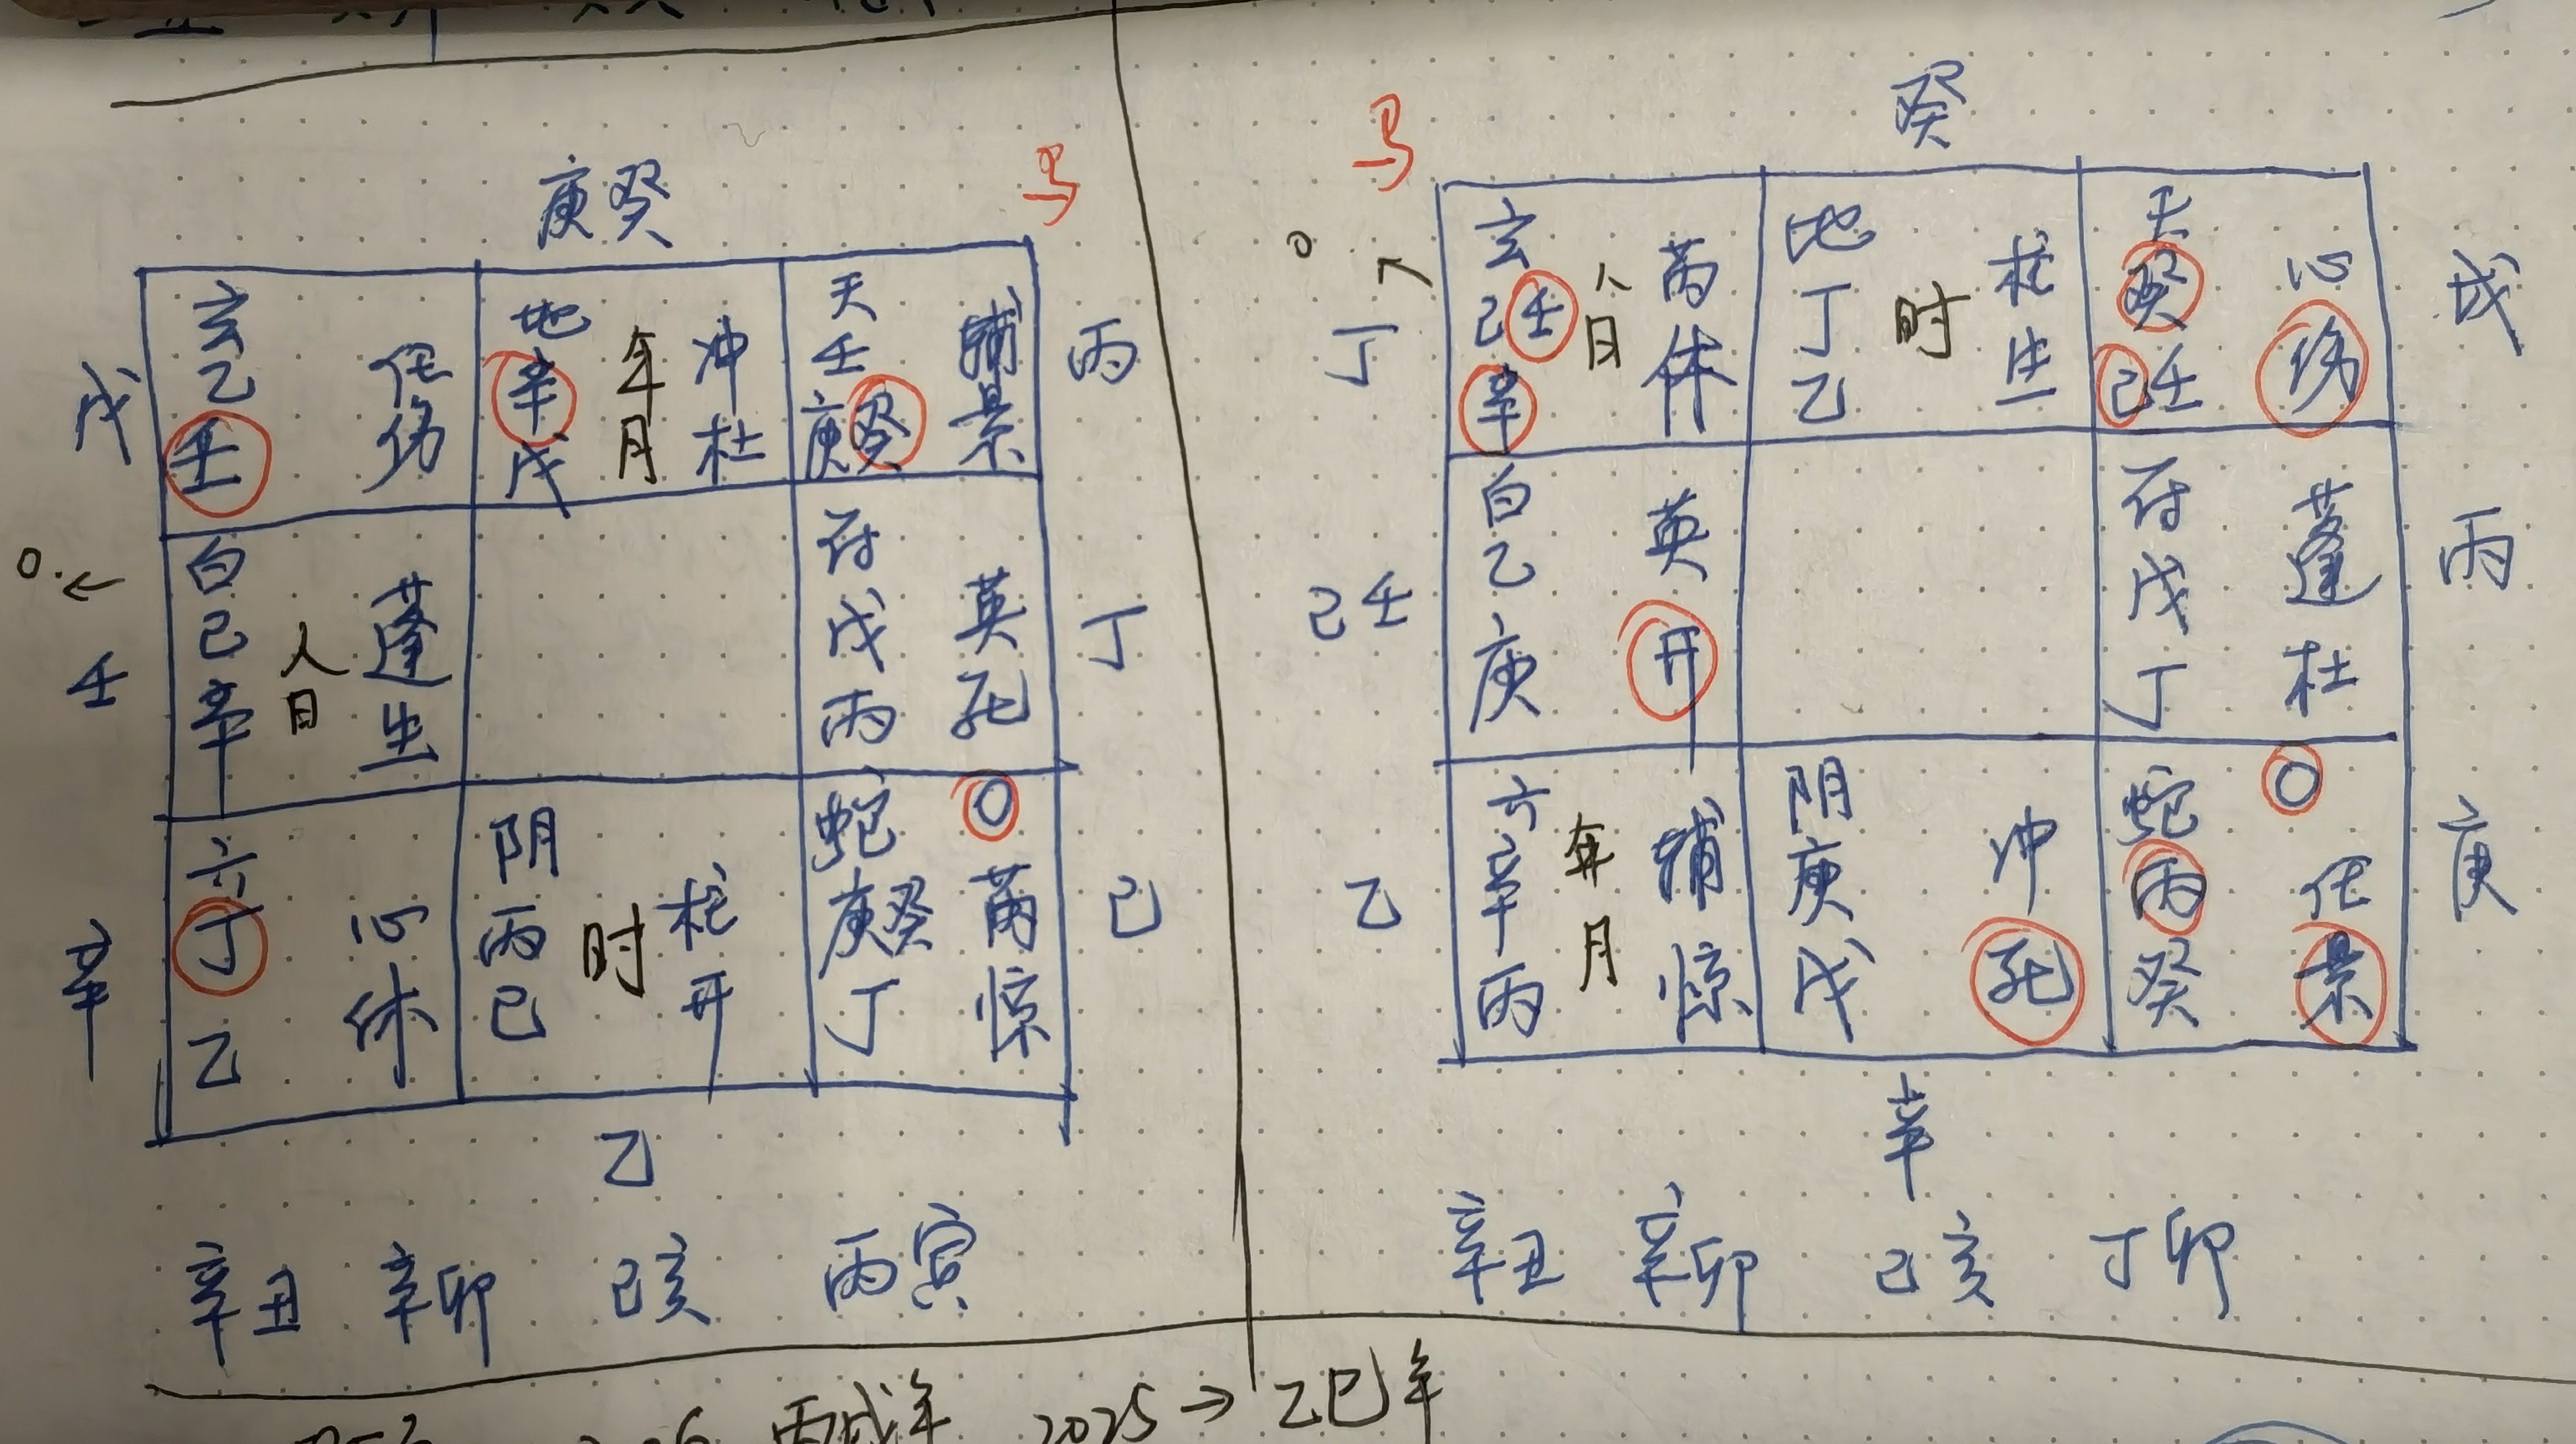 庚癸
马
戊
玄 乙 壬 任 伤
地 辛 戊 年 月 冲 杜
天 壬 庚癸 辅 景
丙
0
壬
白 己 辛 人 日 蓬 生
符 戊 丙 英 死
丁
辛
六 丁 乙 心 休
阴 丙 己 时 柱 开
蛇 庚癸 丁 〇 芮 惊
己
乙
辛丑 辛卯 己亥 丙寅
癸
马
0
丁
玄 己壬 辛 人 日 芮 休
地 丁 乙 时 柱 生
天 癸 己壬 心 伤
戊
己壬
白 乙 庚 英 开
符 戊 丁 蓬 杜
丙
乙
六 辛 丙 年 月 辅 惊
阴 庚 戊 冲 死
蛇 丙 癸 〇 任 景
庚
辛
辛丑 辛卯 己亥 丁卯
丙戌年 2025→乙巳年